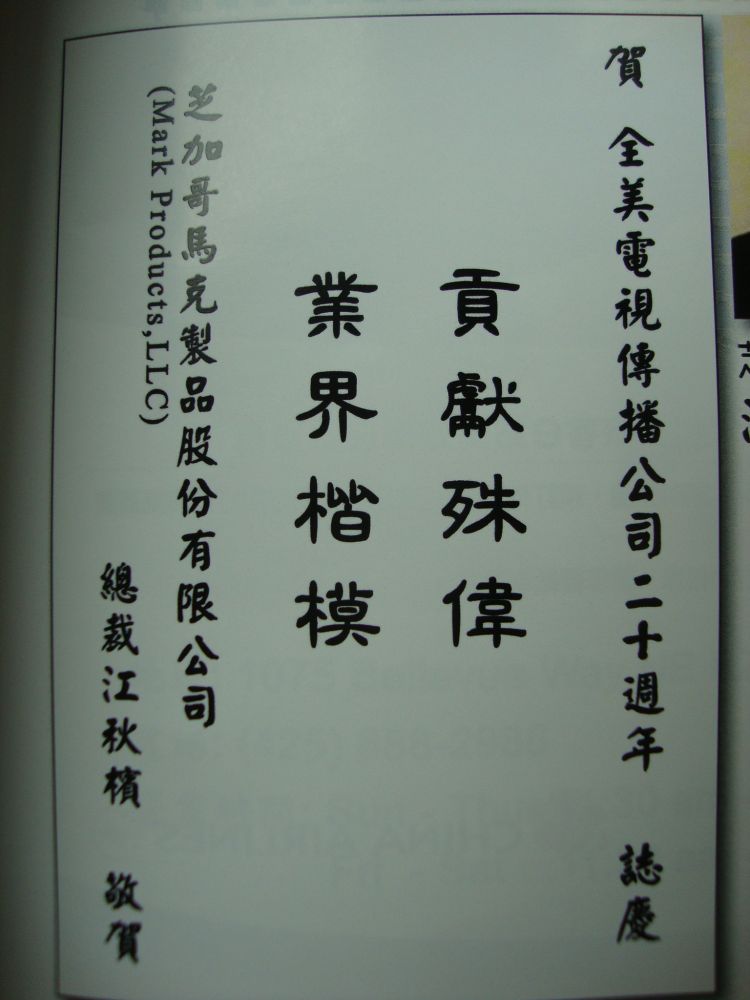 賀 全美電視傳播公司二十週年 誌慶
貢獻殊偉
業界楷模
芝加哥馬克製品股份有限公司
(Mark Products,LLC)
總裁江秋檳 敬賀